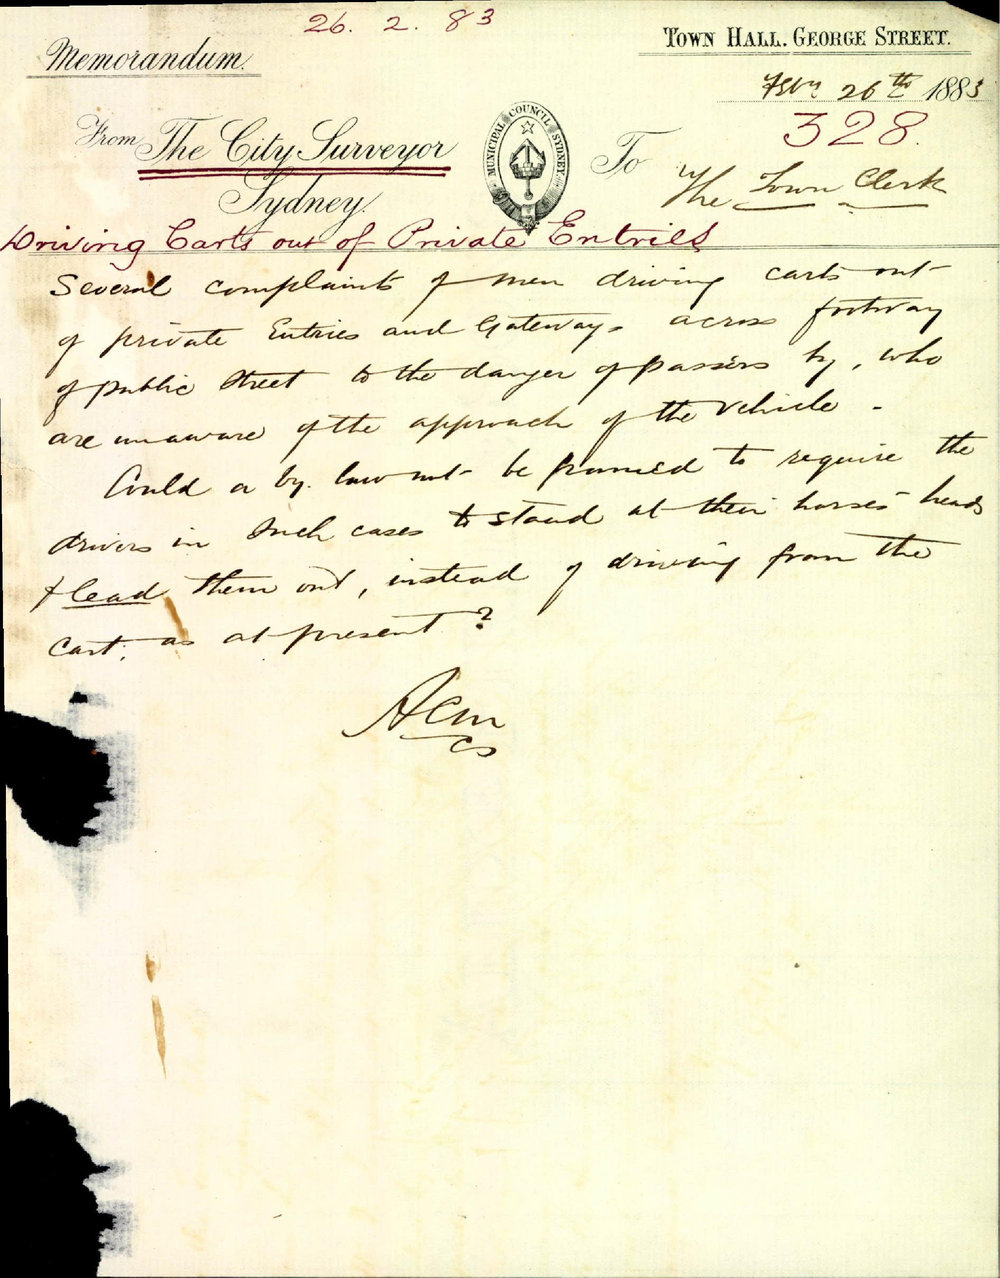 26. 2. 83
Memorandum.
TOWN HALL. GEORGE STREET.
Feby 26th 1883
328.
From The City Surveyor
Sydney.
MUNICIPAL COUNCIL SYDNEY
To
The Town Clerk
Driving Carts out of Private Entries
Several complaints of men driving carts out
of private Entries and Gateways across footway
of public Street to the danger of passers by, who
are unaware of the approach of the vehicle -
Could a by. law not be framed to require the
drivers in such cases to stand at their horses heads
& lead them out, instead of driving from the
cart, as at present ?
ACM
CS